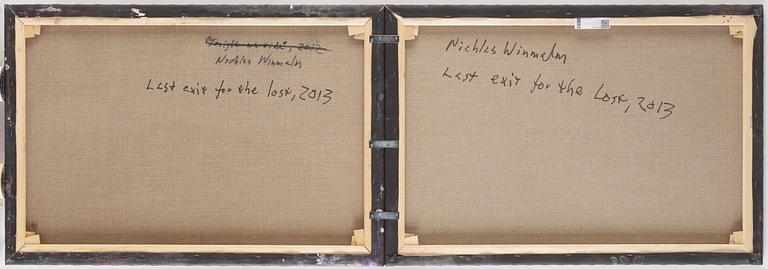 2012
Nichlas Winmalm
Last exit for the lost, 2013
Nichlas Winmalm
Last exit for the lost, 2013